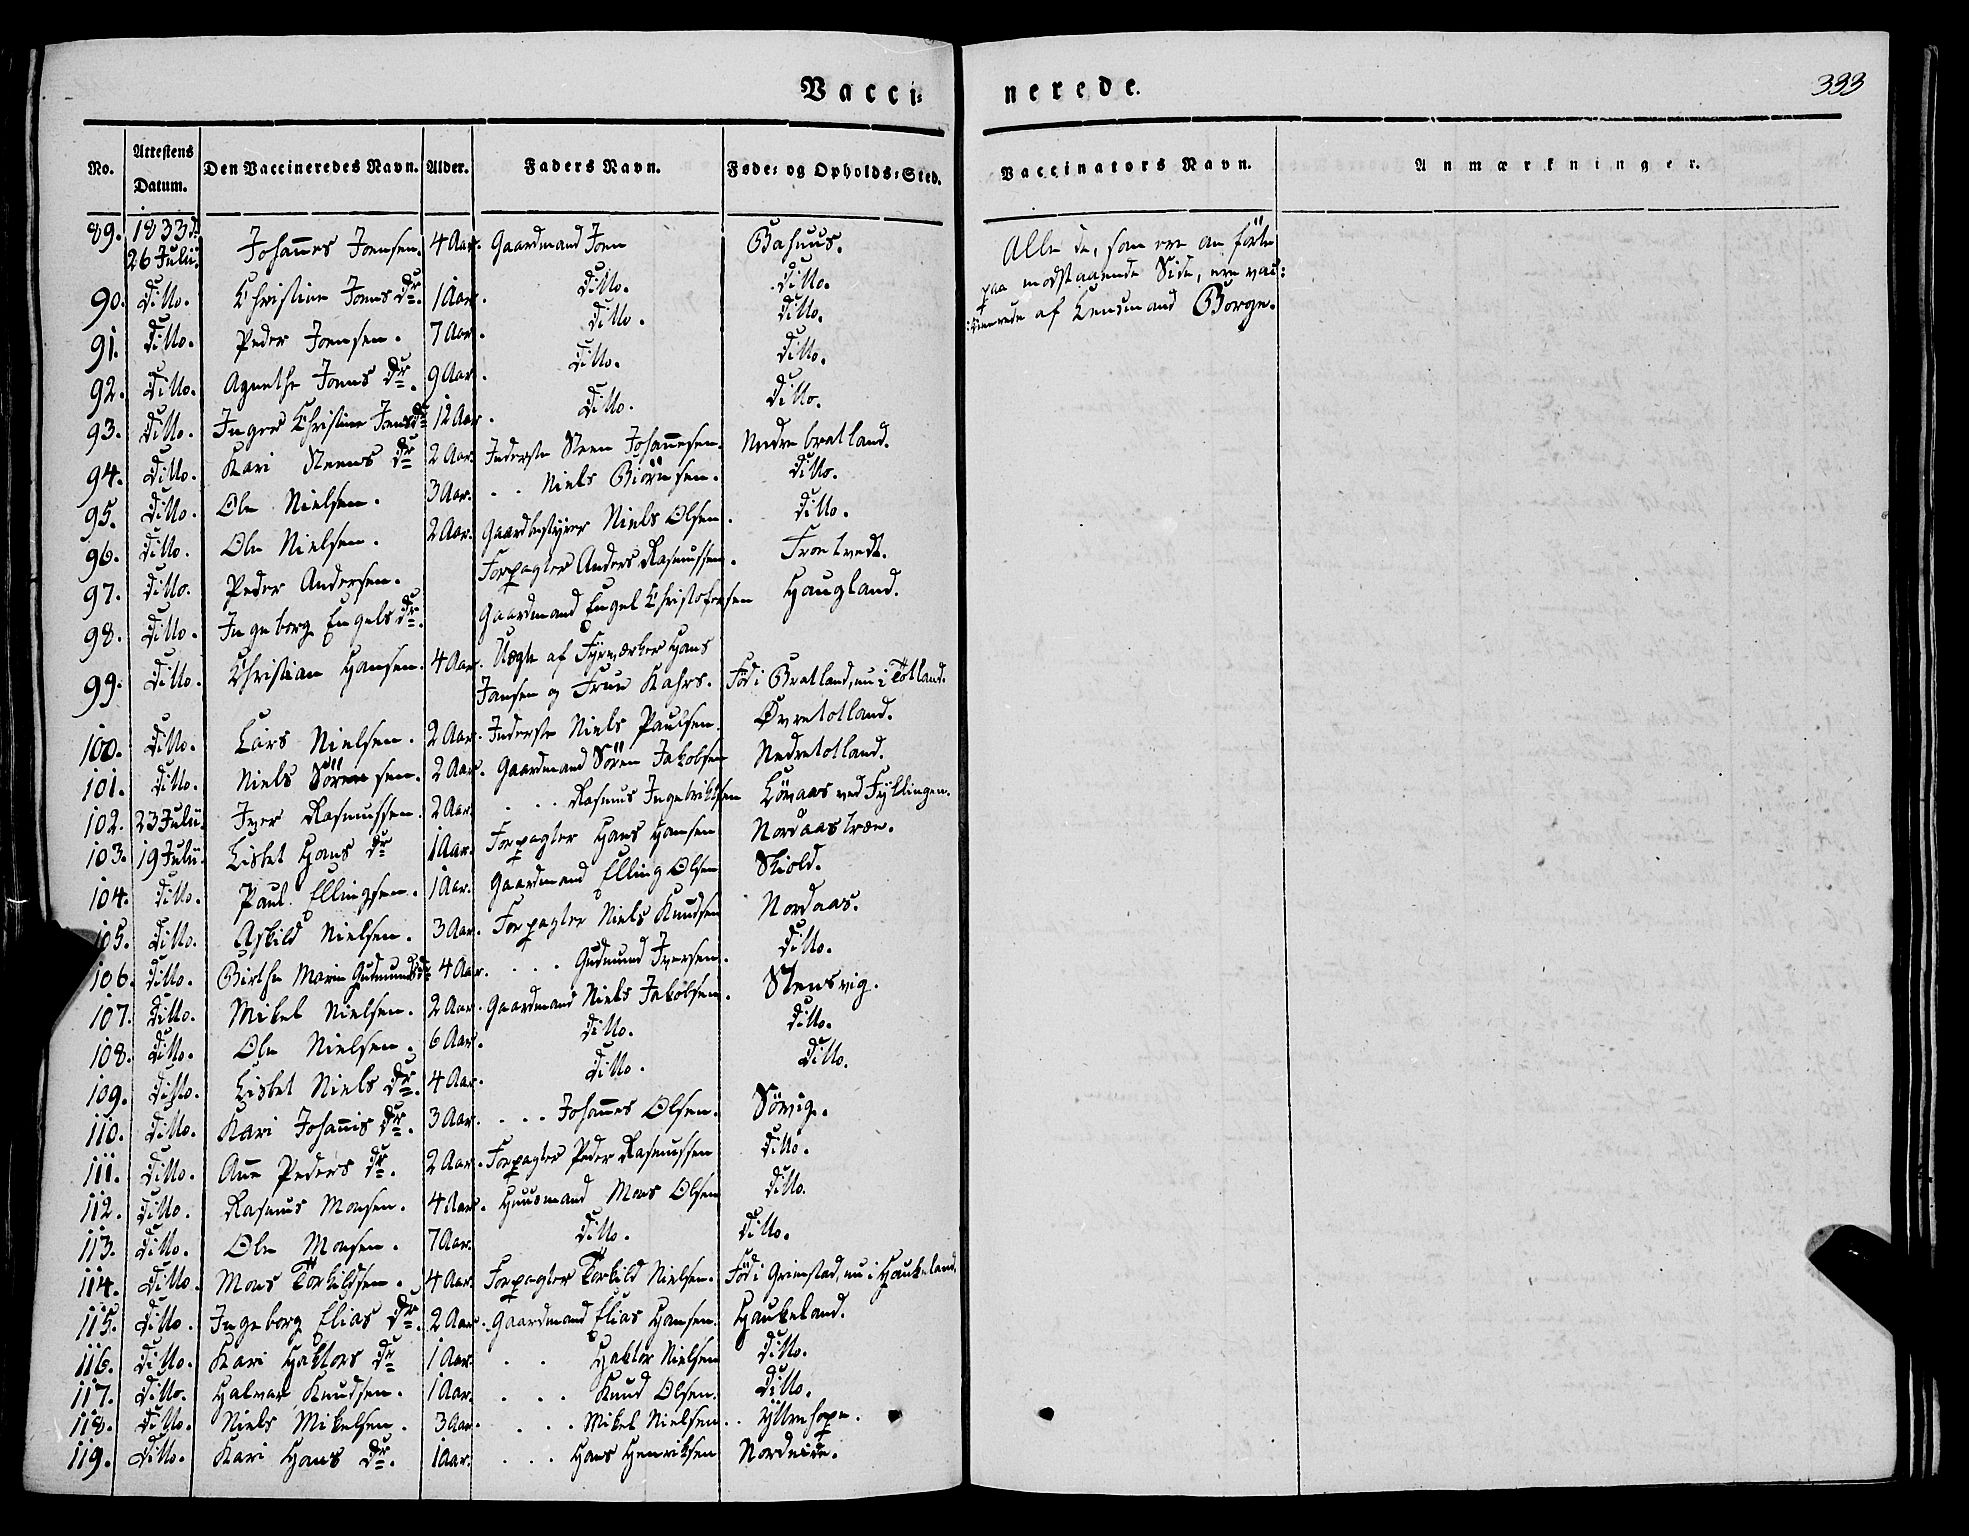 Vacci- nerede.
333
No. Attestens Datum. Den Vaccineredes Navn. Alder. Faders Navn. Føde- og Opholds-Sted. Vaccinators Navn. Anmærkninger.
89. 1833 d. 26 Julii. Johan̅es Joensen. 4 Aar. Gaardmand Joen Basnuus.
90. Ditto. Christine Joens Dr. 1 Aar. Ditto. Ditto.
91. Ditto. Peder Joensen. 7 Aar. Ditto. Ditto.
92. Ditto. Agnethe Joens Dr. 9 Aar. Ditto. Ditto.
93. Ditto. Inger Christine Joensdr 12 Aar. Ditto. Ditto.
94. Ditto. Kari Steens Dr 2 Aar. Inderste Steen Johan̅esen. Nedrebratland.
95. Ditto. Ole Nielsen. 3 Aar. . . Niels Biörnsen. Ditto.
96. Ditto. Ole Nielsen. 2 Aar. Gaardbestyrer Niels Olsen. Ditto.
97. Ditto. Peder Andersen. Forpagter Anders Rasmussen. Troetvedt.
98. Ditto. Ingeborg Engels Dr. Gaardmand Engel Christofersen Haugland.
99. Ditto. Christian Hansen. 4 Aar. Uægte af Fyrværker Hans
Jansen og Frue Kahrs. Föd i Bratland, nu i Totland.
100. Ditto. Lars Nielsen. 2 Aar. Inderste Niels Paulsen. Øvretotland.
101. Ditto. Niels Sörensen. 2 Aar. Gaardmand Sören Jakobsen Nedretotland.
102. 23 Julii. Iver Rasmussen 2 Aar. . . . Rasmus Ingebriktsen Lövaas ved Fyllingen.
103. 19 Julii. Lisbet Hans Dr 1 Aar. Forpagter Hans Hansen Nordaastræe.
104. Ditto. Paul Ellingsen. 1 Aar. Gaardmand Elling Olsen Skiold.
105. Ditto. Askild Nielsen. 3 Aar. Forpagter Niels Knudsen Nordaas.
106. Ditto. Birthe Marie Gudmundsdr 4 Aar. . . . Gudmund Iversen. Ditto.
107. Ditto. Mikel Nielsen. 2 Aar. Gaardmand Niels Jakobsen. Stensvig.
108. Ditto. Ole Nielsen. 6 Aar. Ditto. Ditto.
109. Ditto. Lisbet Niels Dr. 4 Aar. Ditto. Ditto.
110. Ditto. Kari Johan̅is Dr. 3 Aar. . . . Johan̅es Olsen. Sövig.
111. Ditto. An̅e Peders Dr. 2 Aar. Forpagter Peder Rasmussen Ditto.
112. Ditto. Rasmus Monsen. 4 Aar. Huusmand Mons Olsen Ditto.
113. Ditto. Ole Monsen. 7 Aar. Ditto. Ditto.
114. Ditto. Mons Torkildsen. 4 Aar. Forpagter Torkild Nielsen. Föd i Grimstad, nu i Haukeland.
115. Ditto. Ingeborg Elias Dr. 2 Aar. Gaardmand Elias Hansen. Haukeland.
116. Ditto. Kari Haktors Dr 1 Aar. . . Haktor Nielsen Ditto.
117. Ditto. Halvar Knudsen. 1 Aar. . . . Knud Olsen. Ditto.
118. Ditto. Niels Mikelsen. 3 Aar. . . . Mikel Nielsen. . Yttrehope.
119. Ditto. Kari Hans Dr. 1 Aar. . . . Hans Henriksen Nordeide.
Alle de, som ere anförte
paa modstaaende Side, ere vac-
cinerede af Lensmand Borge.